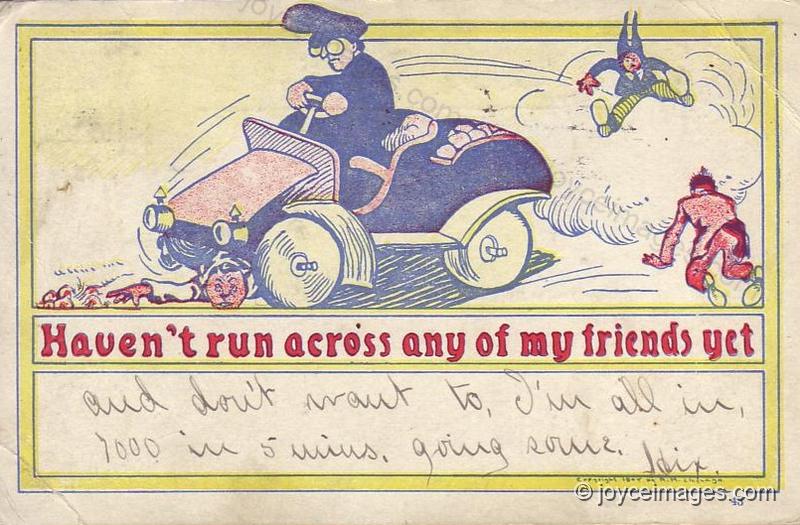 Haven't run across any of my friends yet
and don't want to, I'm all in,
7000 in 5 mins. going some.
Hix.
45
© joyceimages.com